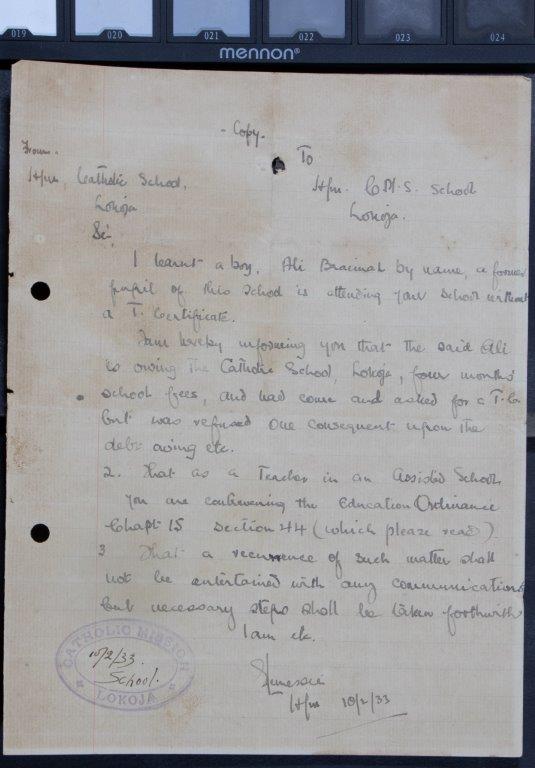 019 020 021 022 023 024
mennon®
- Copy -
From.
To
H/m, Catholic School,
H/m. C.M.S. School
Lokoja
Lokoja.
Sir,
I learnt a boy, Ali Braimah by name, a former
pupil of this School is attending your School without
a T. Certificate.
I am hereby informing you that the said Ali
is owing The Catholic School, Lokoja, four months'
school fees, and had come and asked for a T.C.
but was refused one consequent upon the
debt owing etc.
2. That as a Teacher in an Assisted School
you are contravening the Education Ordinance
Chapt. 15 Section 44 (which please read)
3 That a recurrence of such matter shall
not be entertained with any communications
but necessary steps shall be taken forthwith
I am etc.
H/m 10/2/33
CATHOLIC MISSION
10/2/33.
School.
LOKOJA